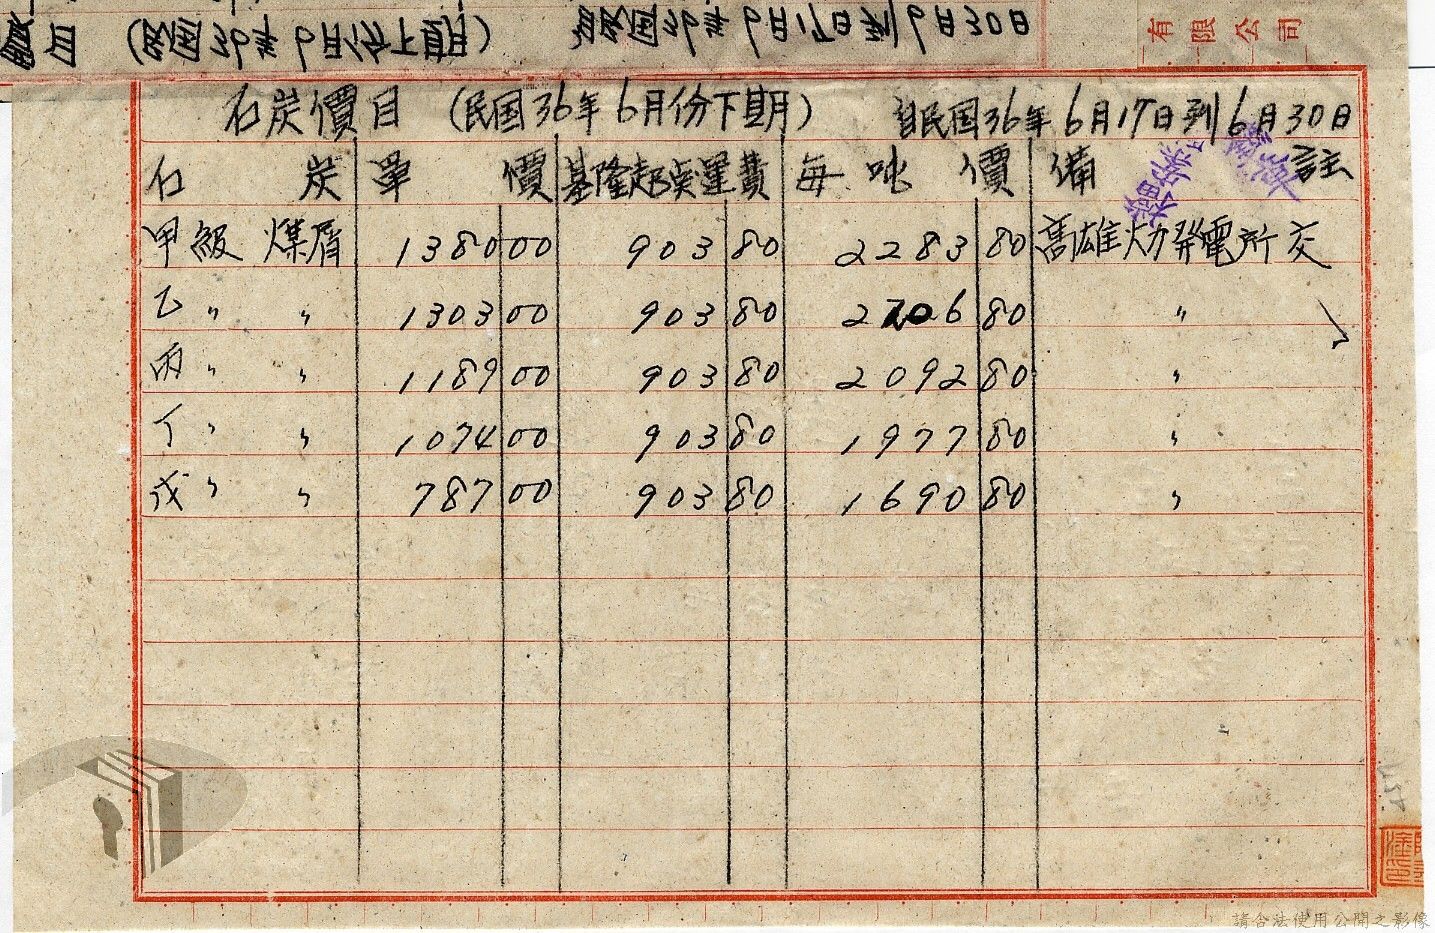 價目 (民国36年6月份下期) 自民国36年6月17日到6月30日
有限公司
石炭價目 (民国36年6月份下期) 自民国36年6月17日到6月30日
石炭 單價 基隆起卸運費 每吨價 備註
甲級 煤屑 1380 00 903 80 2283 80 高雄火力発電所交
乙 〃 〃 1303 00 903 80 2206 80 〃
丙 〃 〃 1189 00 903 80 2092 80 〃
丁 〃 〃 1074 00 903 80 1977 80 〃
戊 〃 〃 787 00 903 80 1690 80 〃
請合法使用公開之影像